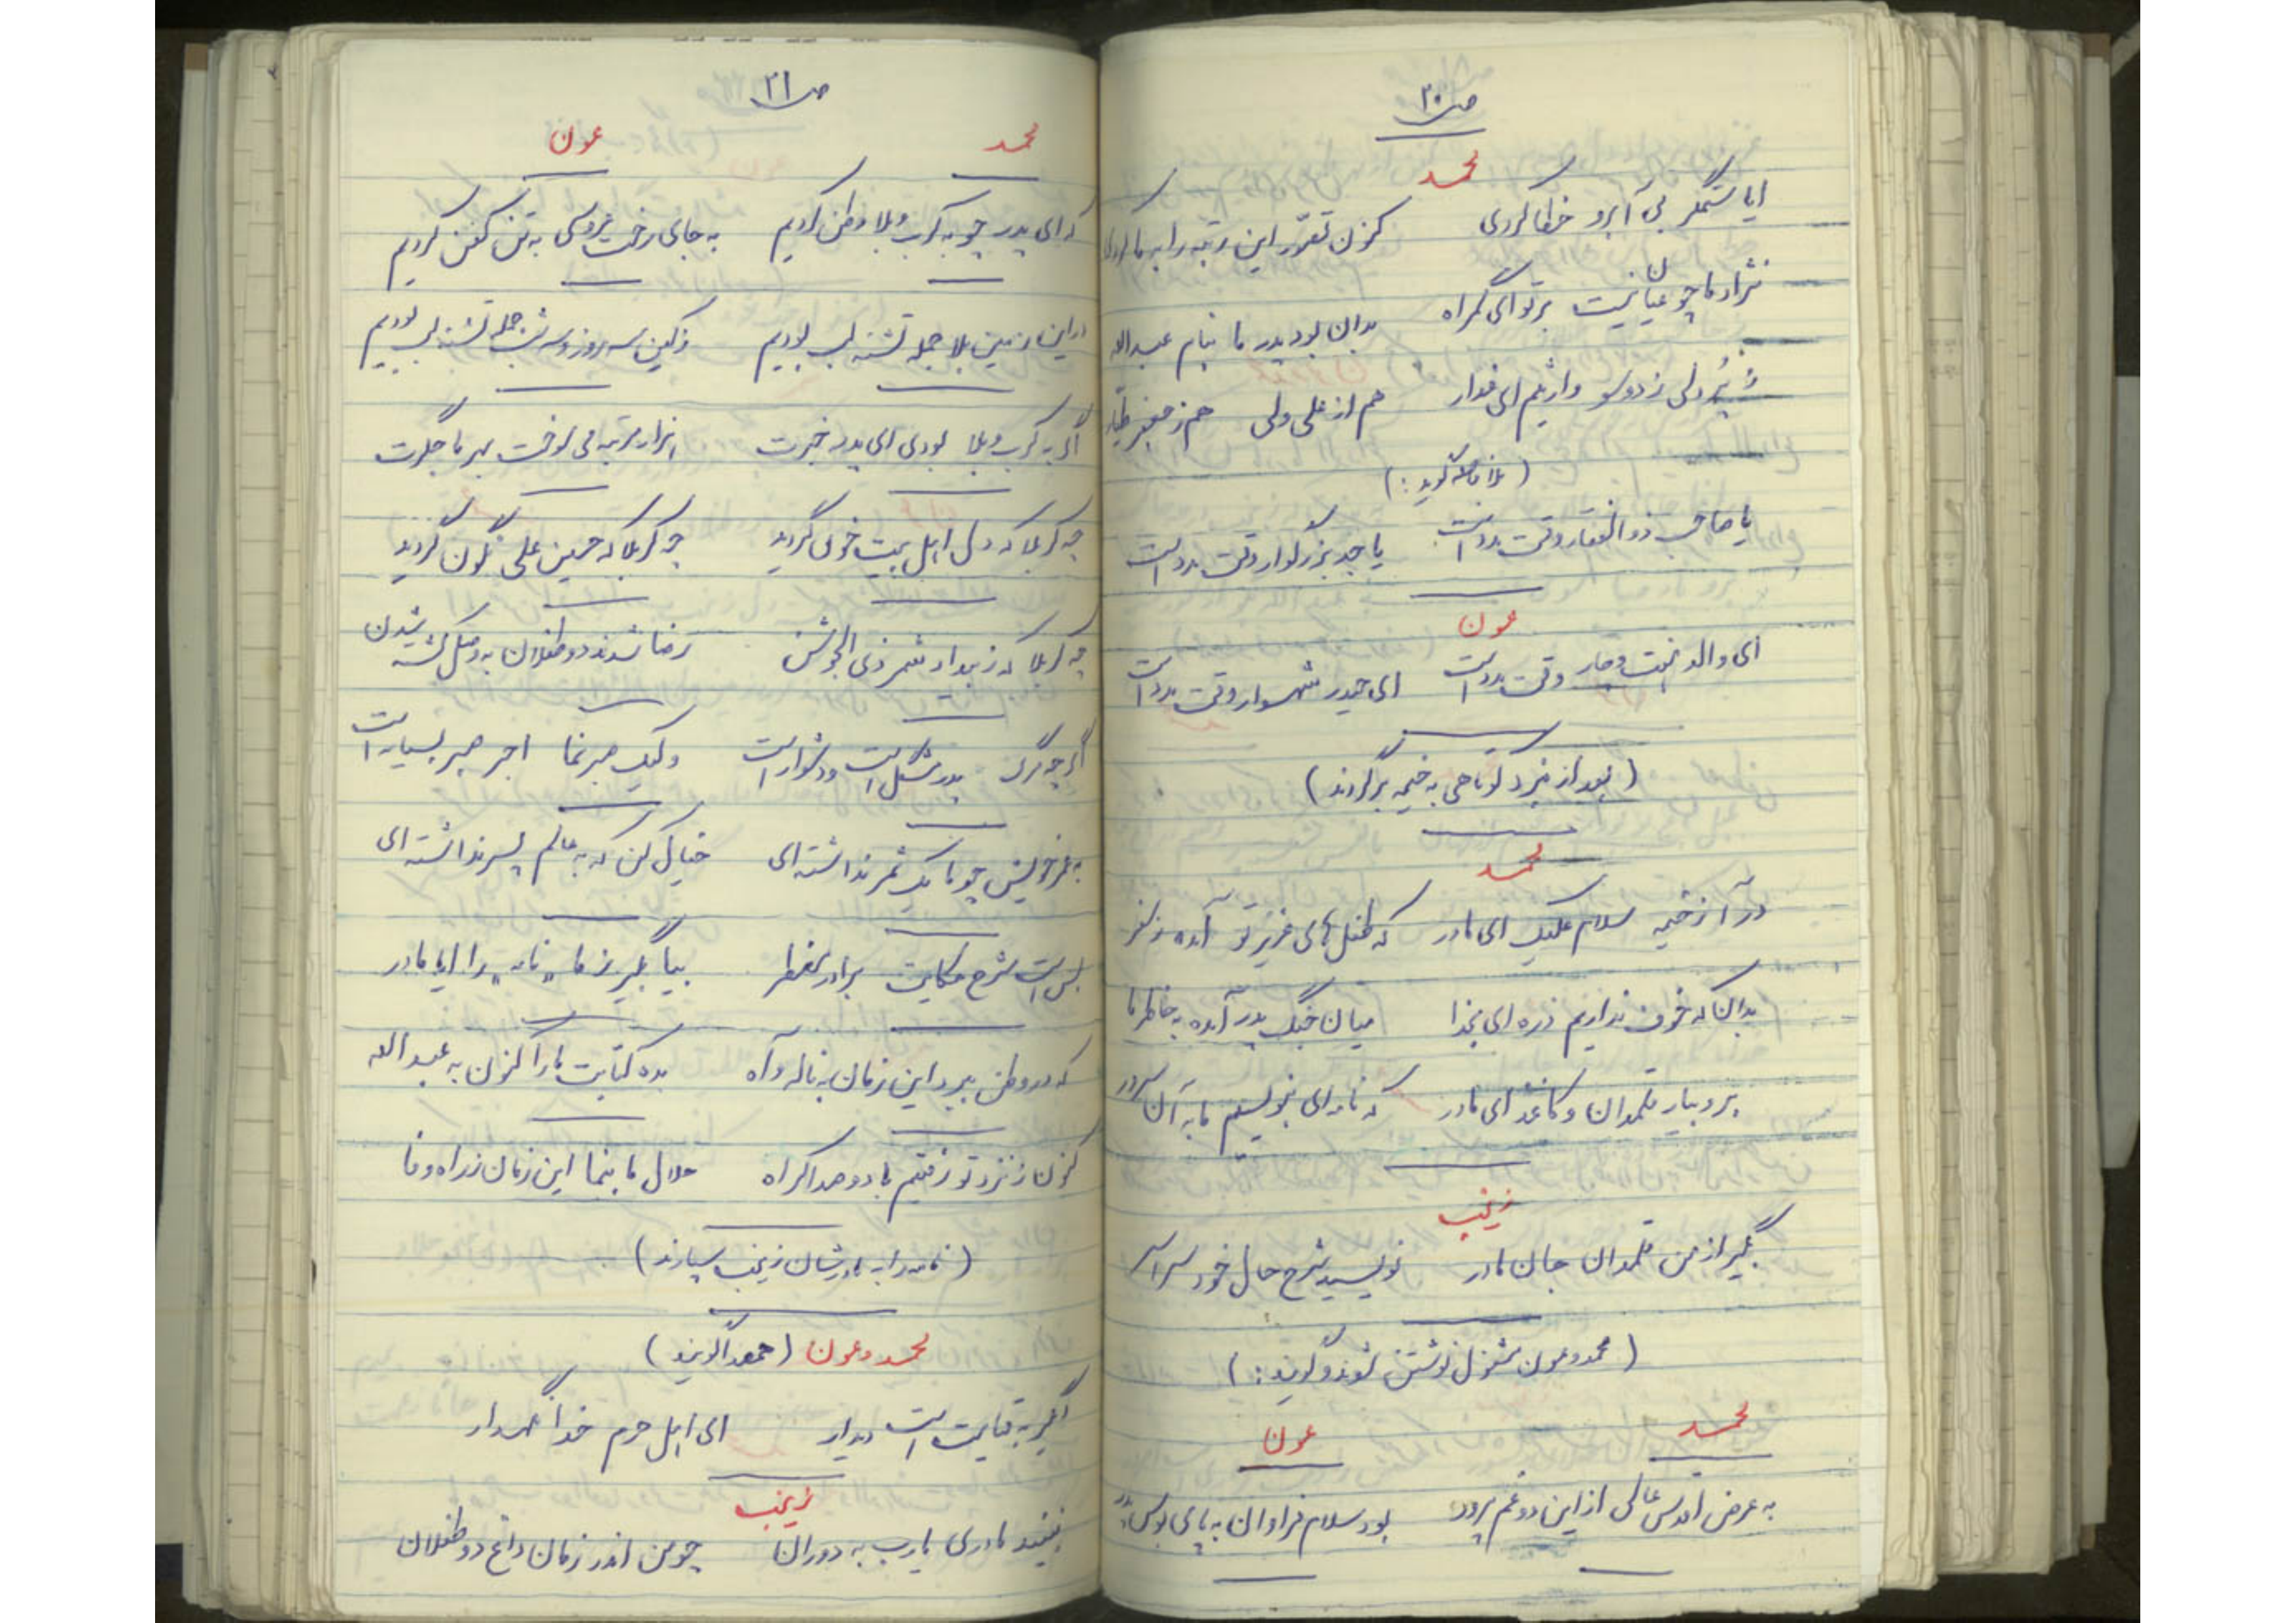 ص ۲۰
محمد
ایا ستمگر بی آبرو خطا کردی کنون تقرر این رتبه را به ما کردی
نژاد ما چو عیان نیست بر تو ای گمراه بدان بود پدر ما بنام عبدالله
ز پُر دلی ز دو سو وارثیم ای غدار هم از علی ولی هم ز جعفر طیار
(بلافاصله گوید:)
یا صاحب ذوالفقار وقت مدد است یا جد بزرگوار وقت مدد است
عون
ای والد وقار وقت مدد است ای حیدر شهسوار وقت مدد است
(بعد از نبرد کوتاهی به خیمه برگردند)
محمد
درآ ز خیمه سلام علیک ای مادر که طفل های عزیز تو آمده ز سفر
بدان که خوف نداریم ذره ای بخدا میان جنگ پدر آمده به خاطر ما
برو بیار قلمدان و کاغذ ای مادر که نامه ای بنویسم ما به آن سرور
زینب
بگیر از من قلمدان جان مادر نویسید شرح حال خود سراسر
(محمد و عون مشغول نوشتن شوند و گویند:)
محمد عون
به عرض اقدس عالی از این دو غم پرور بود سلام فراوان به پای بوس پدر
ص ۲۱
محمد عون
که ای پدر چو به کرب و بلا وطن کردیم به جای رخت عروسی به تن کفن کردیم
در این زمین بلا جمله تشنه لب بودیم سه روز و سه شب جمله تشنه لب بودیم
اگر به کرب و بلا بودی ای پدر خبرت هزار مرتبه می سوخت بهر ما جگرت
چه کربلا که دل اهل بیت خون گردید چه کربلا که حسین علی نگون گردید
چه کربلا که ز بیداد شمر ذی الجوشن رضا شدند دو طفلان به کشته شدن
اگر چه مرگ پسر مشکل است و دشوار است ولیک صبر نما اجر صبر بسیار است
به عمر خویش چو ما یک ثمر نداشته ای خیال کن که به عالم پسر نداشته ای
بس است شرح حکایت برادر مضطر بیا بگیر ز ما "نامه" را ایا مادر
که در وطن ببرد این زمان به ناله و آه بده کتابت ما را کنون به عبدالله
کنون ز نزد تو رفتیم با دو صد اکراه حلال ما بنما این زمان ز راه وفا
(نامه را به مادرشان زینب سپارند)
محمد و عون (همصدا گویند)
دیگر به قیامت است دیدار ای اهل حرم خدا نگهدار
زینب
نبیند مادری یارب به دوران چو من اندر زمان داغ دو طفلان